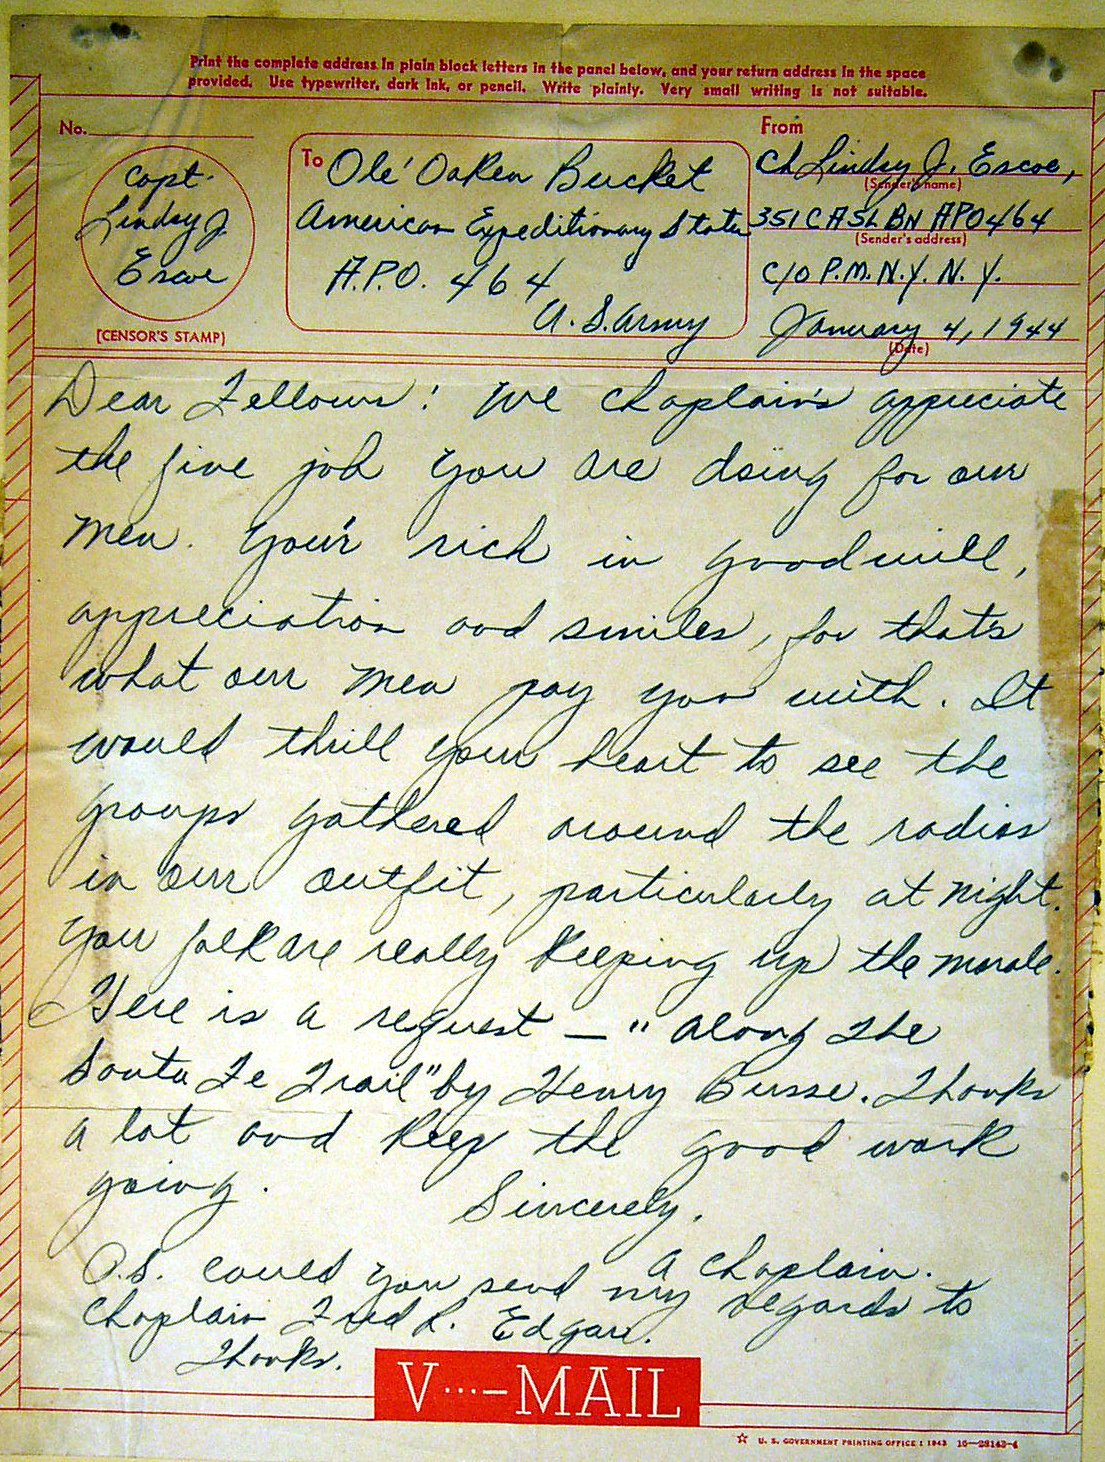 Print the complete address in plain block letters in the panel below, and your return address in the space
provided. Use typewriter, dark ink, or pencil. Write plainly. Very small writing is not suitable.
No.
Capt.
Lindsy J
Escoe
[CENSOR'S STAMP]
To Ole' Oaken Bucket
American Expeditionary Station
A.P.O. 464
U.S. Army
From
Ch Lindsy J. Escoe,
(Sender's name)
351 C A SL BN APO 464
(Sender's address)
C/O P.M. N.Y. N.Y.
January 4, 1944
(Date)
Dear Fellows! We Chaplain's appreciate
the fine job you are doing for our
men. You'r rich in goodwill,
appreciation and smiles, for that's
what our men pay you with. It
would thrill your heart to see the
groups gathered around the radios
in our outfit, particularly at night.
You folk are really keeping up the morale.
Here is a request — "Along the
Santa Fe Trail" by Henry Busse. Thanks
a lot and keep the good work
going.
Sincerely,
A Chaplain.
P.S. Could you send my regards to
Chaplain Fred L. Edgar.
Thanks.
V···—MAIL
☆ U. S. GOVERNMENT PRINTING OFFICE : 1943 16—28143-4